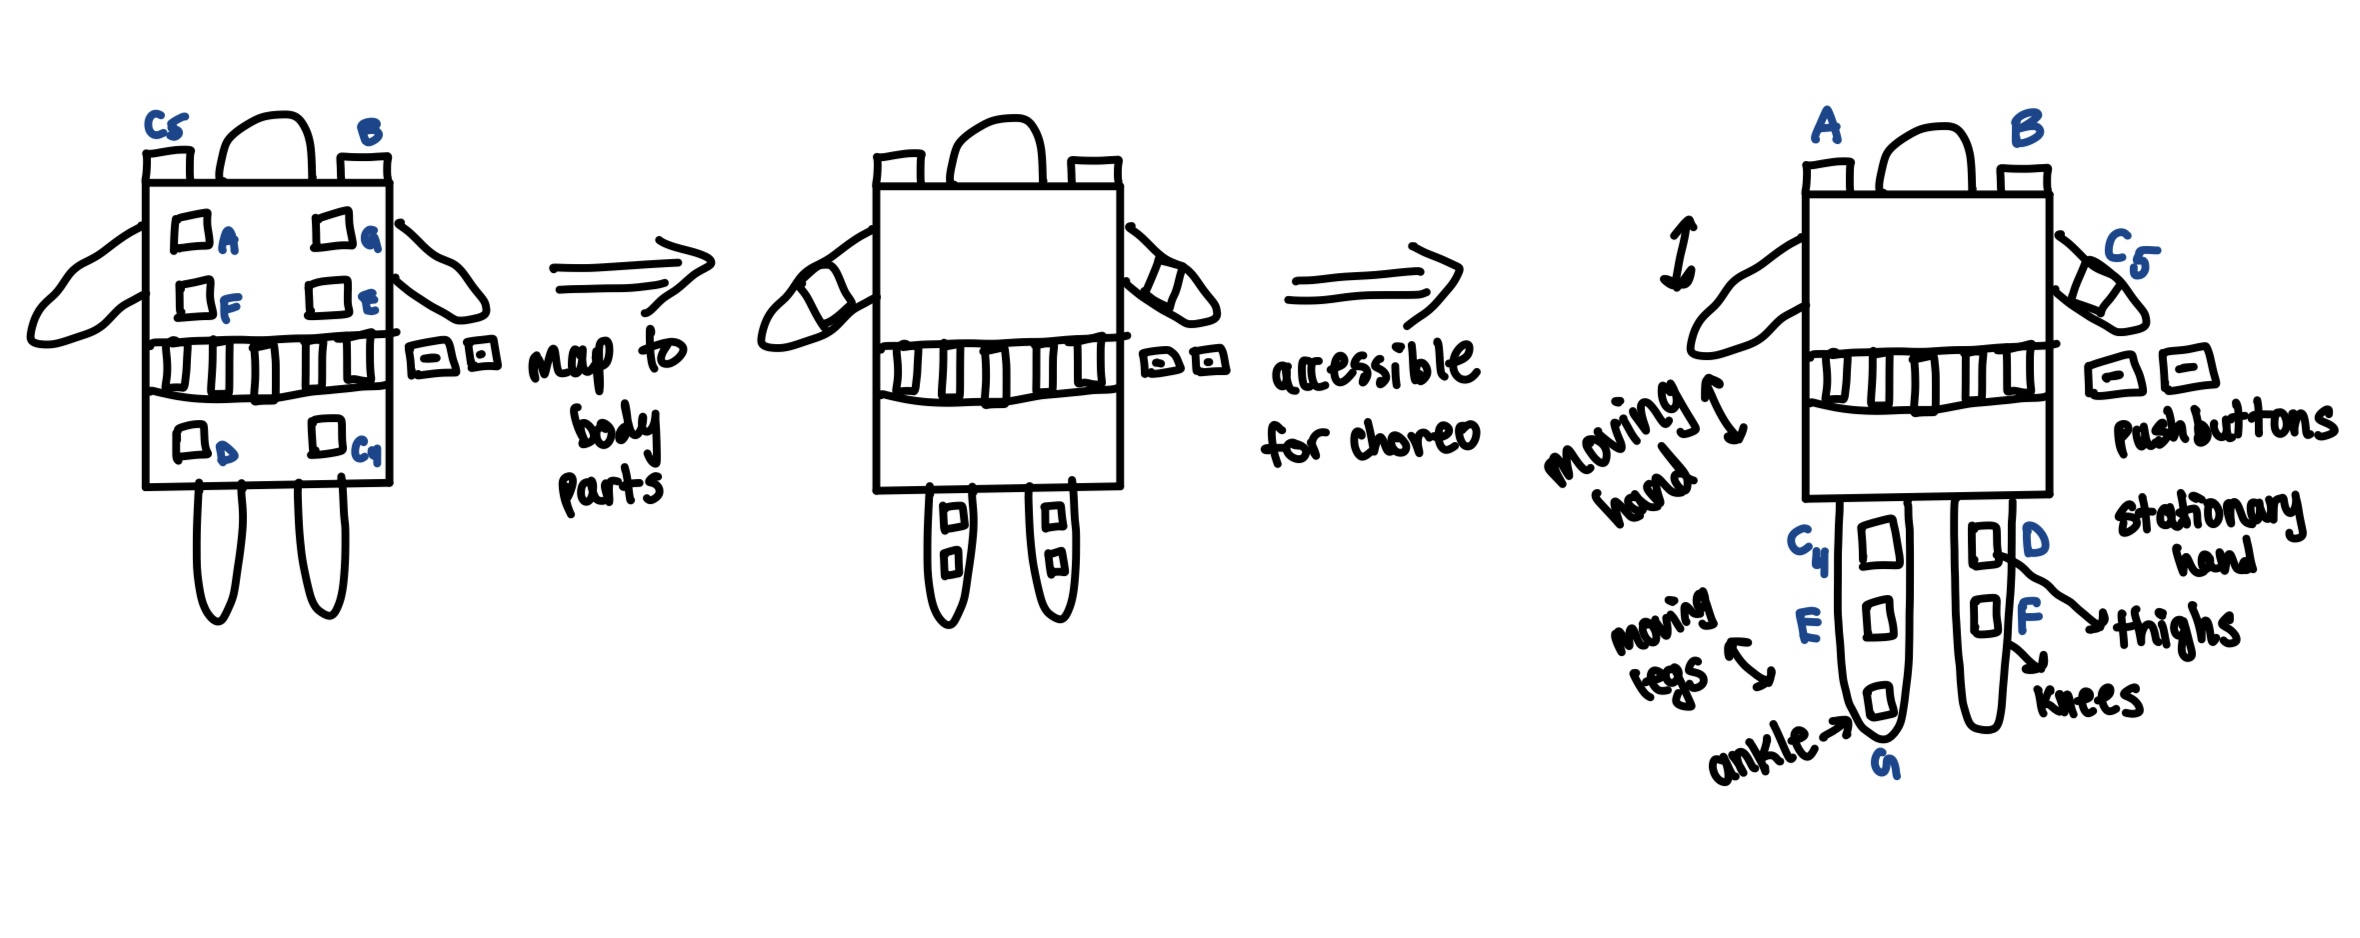 C5
B
A
G
F
E
D
C4
map to
body
parts
accessible
for choreo
A
B
C5
moving
hand
pushbuttons
stationary
hand
C4
D
E
F
thighs
knees
moving
legs
ankle
G